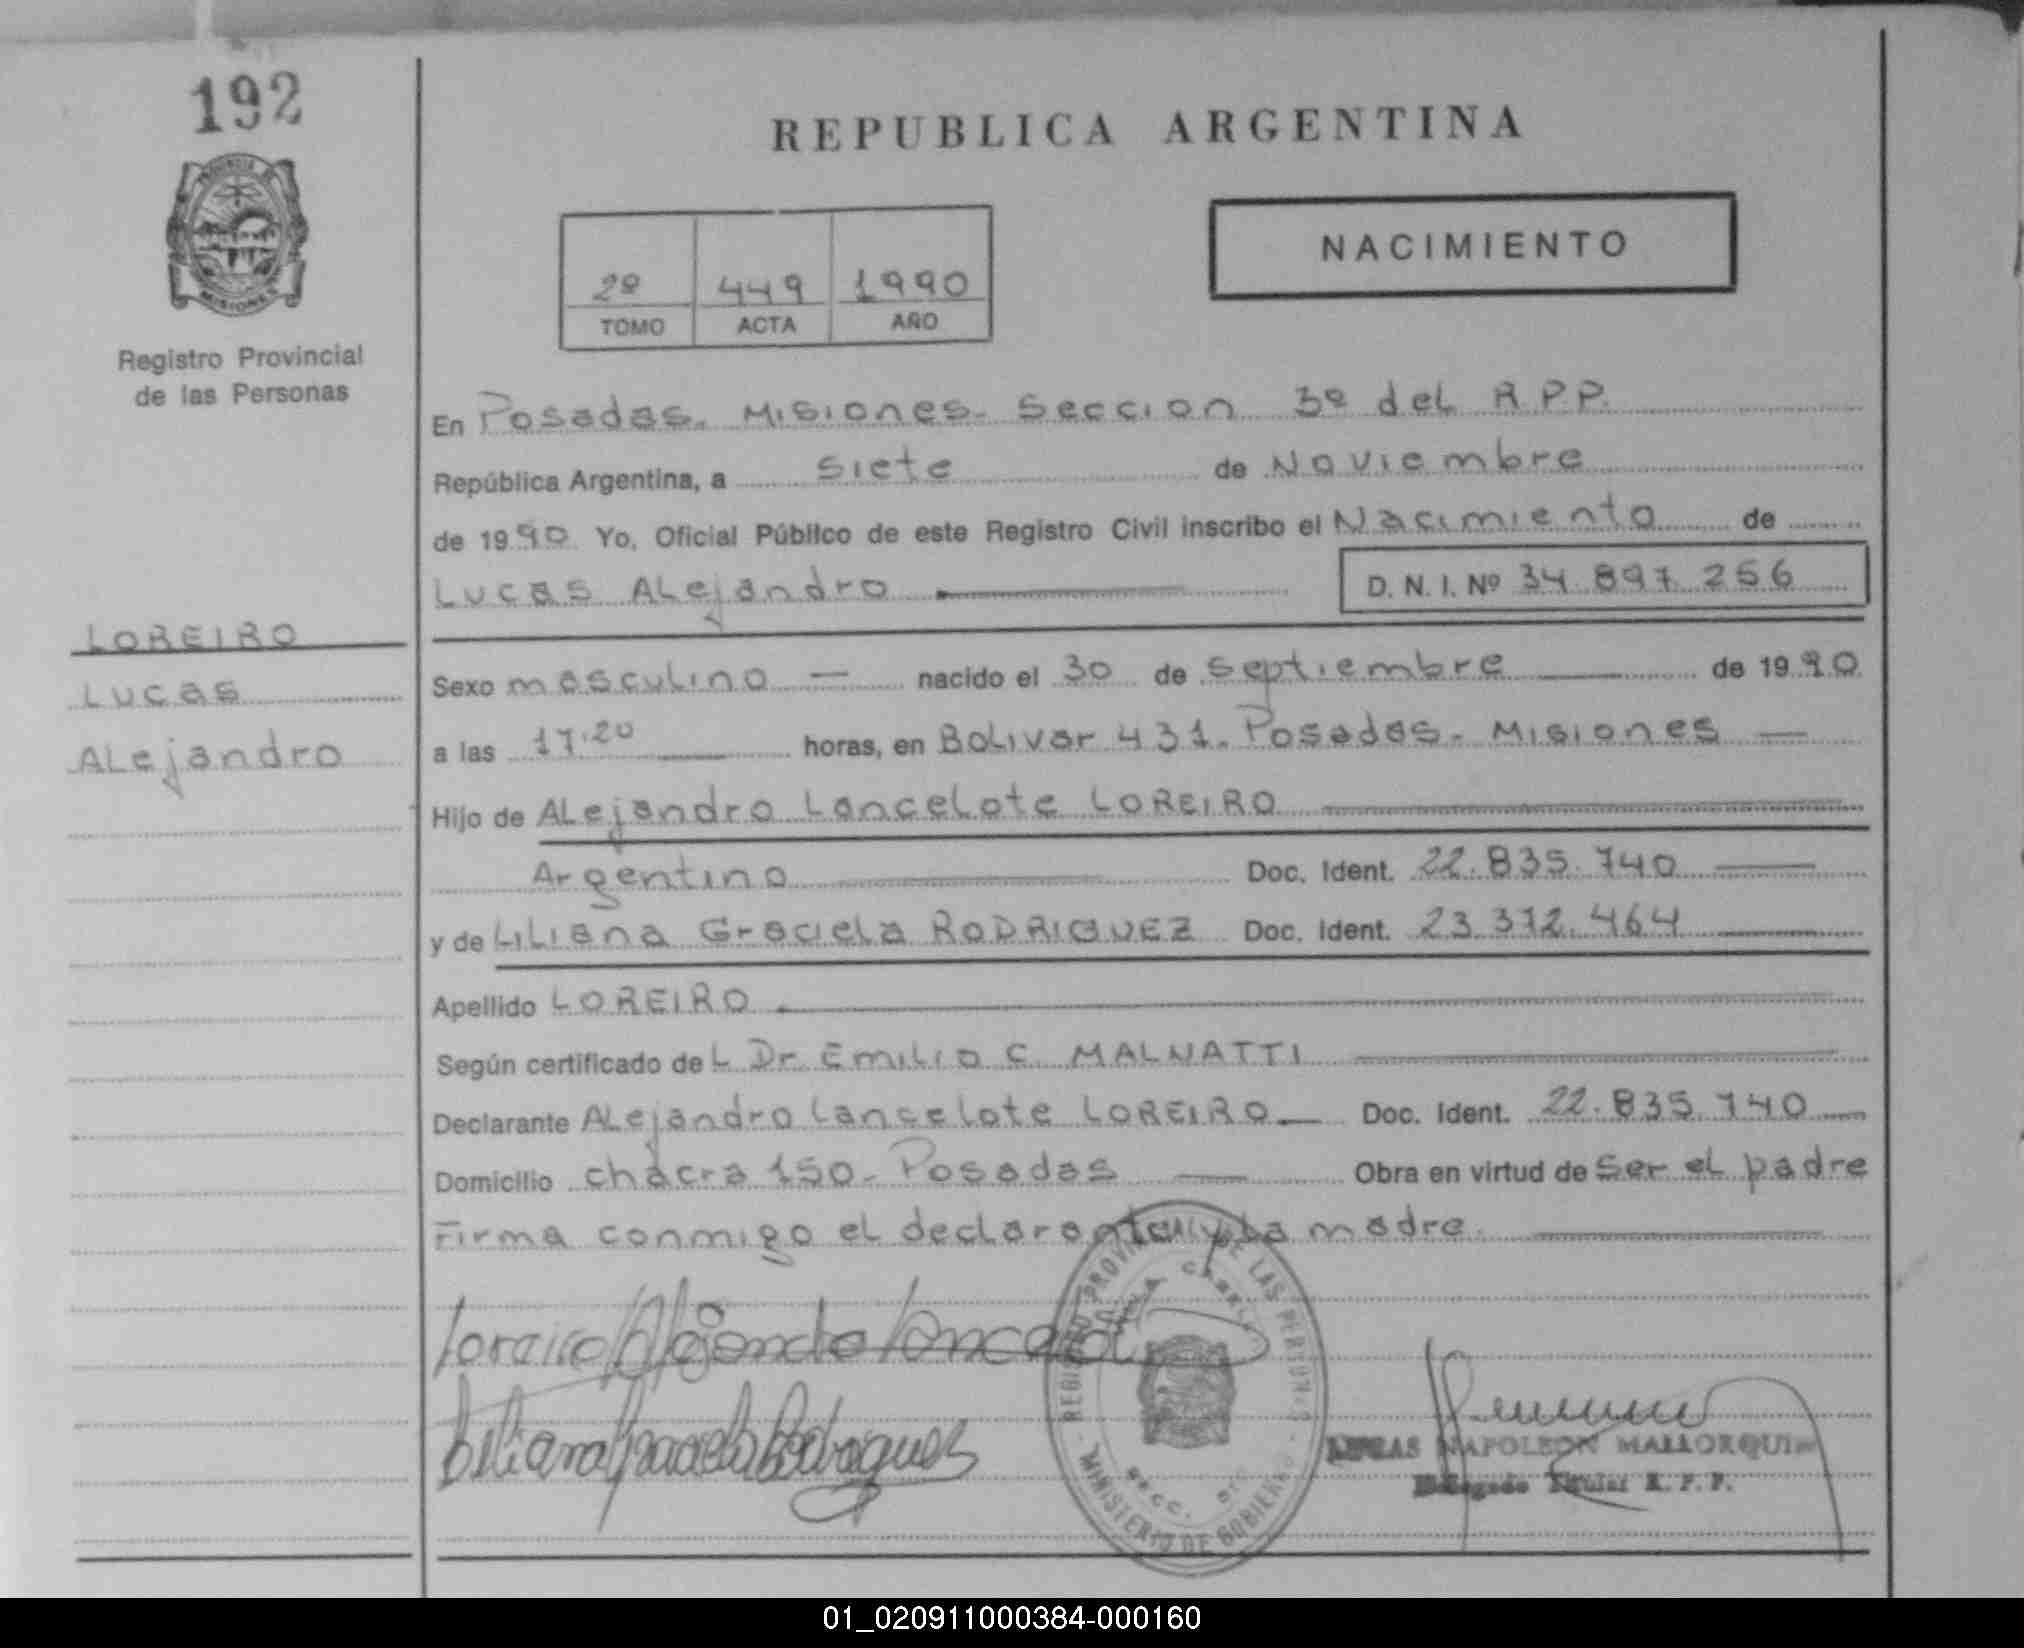 192
PROVINCIA DE
MISIONES
Registro Provincial
de las Personas
LOREIRO
Lucas
Alejandro
REPUBLICA ARGENTINA
2º 449 1990
TOMO ACTA AÑO
NACIMIENTO
En Posadas. Misiones. Seccion 3º del R.P.P.
República Argentina, a siete de Noviembre
de 1990 Yo, Oficial Público de este Registro Civil inscribo el Nacimiento de
Lucas Alejandro D. N. I. Nº 34.897.256
Sexo masculino — nacido el 30 de septiembre de 1990
a las 17.20 horas, en Bolivar 431. Posadas. Misiones —
Hijo de Alejandro Lancelote LOREIRO
Argentino Doc. Ident. 22.835.740
y de Liliana Graciela RODRIGUEZ Doc. Ident. 23.372.464
Apellido LOREIRO
Según certificado del Dr. Emilio C. MALNATTI
Declarante Alejandro Lancelote LOREIRO — Doc. Ident. 22.835.740
Domicilio chacra 150. Posadas — Obra en virtud de ser el padre
Firma conmigo el declarante y la madre.
Loreiro Alejandro Lancelot
Liliana Graciela Rodriguez
REGISTRO PROVINCIAL DE LAS PERSONAS
SECC.
MINISTERIO DE GOBIERNO
LUCAS NAPOLEON MALLORQUIN
Delegado Titular R. P. P.
01_020911000384-000160